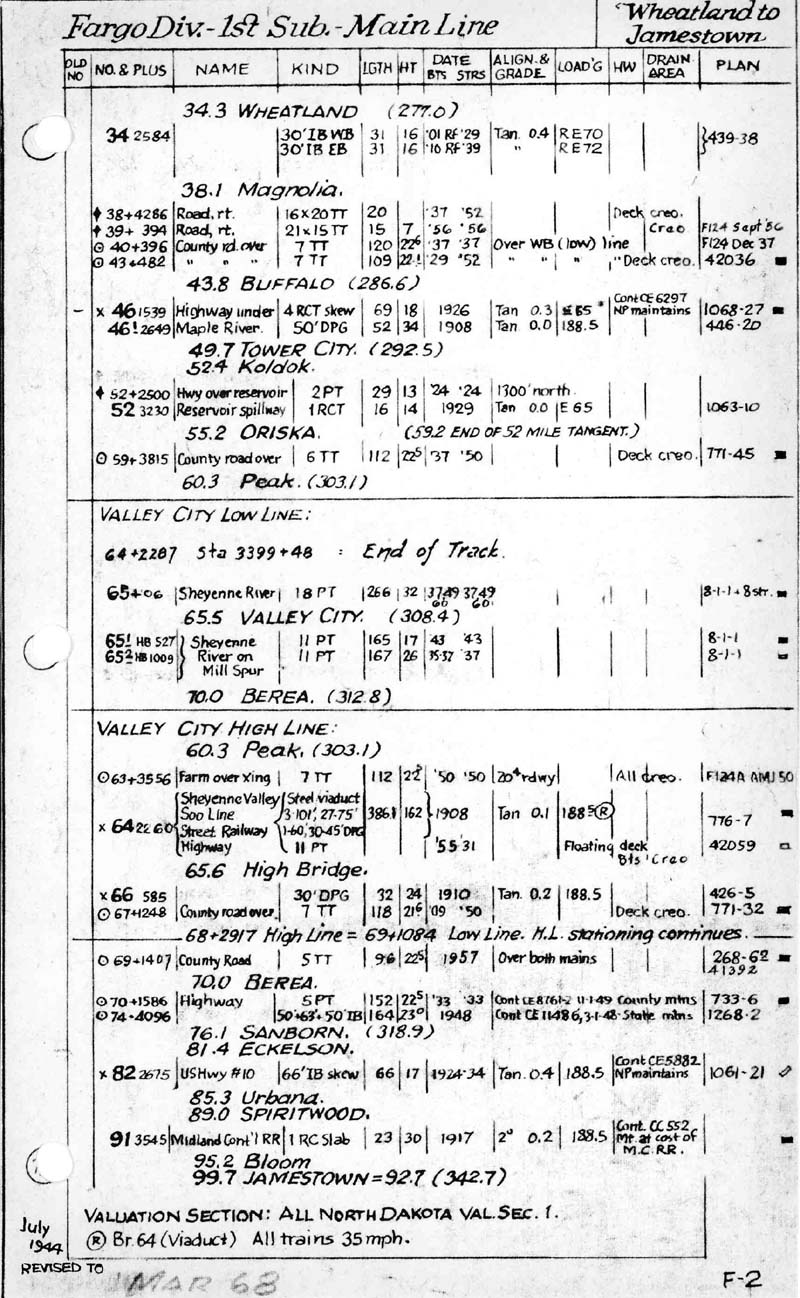 Fargo Div.-1st Sub.-Main Line
Wheatland to
Jamestown
OLD NO | NO. & PLUS | NAME | KIND | LGTH | HT | DATE BTS STRS | ALIGN. & GRADE | LOAD'G | HW | DRAIN AREA | PLAN
34.3 WHEATLAND (277.0)
34 2584 30' IB WB 31 16 '01 RF '29 Tan. 0.4 RE70 } 439-38
30' IB EB 31 16 '10 RF '39 " RE72
38.1 Magnolia.
38+4286 Road, rt. 16 x 20 TT 20 '37 '52 Deck creo.
39+ 394 Road, rt. 21 x 15 TT 15 7 '56 '56 Creo F124 Sept '56
40+396 County rd. over 7 TT 120 22⁶ '37 '37 Over WB (low) line F124 Dec 37
43+482 " " " 7 TT 109 22·¹ '29 '52 " " " " " Deck creo. 42036
43.8 BUFFALO (286.6)
- x 46 1539 Highway under 4 RCT skew 69 18 1926 Tan 0.3 E65 Cont CE 6297 NP maintains 1068-27
46¹ 2649 Maple River. 50' DPG 52 34 1908 Tan 0.0 188.5 446-20
49.7 TOWER CITY. (292.5)
52.4 Koldok.
52+2500 Hwy over reservoir 2 PT 29 13 '24 '24 1300' north.
52 3230 Reservoir spillway 1 RCT 16 14 1929 Tan 0.0 E 65 1063-10
55.2 ORISKA. (59.2 END OF 52 MILE TANGENT.)
59+3815 County road over 6 TT 112 22⁵ '37 '50 Deck creo. 771-45
60.3 Peak. (303.1)
VALLEY CITY LOW LINE:
64+2287 Sta 3399+48 = End of Track.
65+06 Sheyenne River 18 PT 266 32 37,49 37,49 8-1-1 + 8 str.
60 60
65.5 VALLEY CITY. (308.4)
65¹ HB 527 } Sheyenne 11 PT 165 17 '43 '43 8-1-1
65² HB 1009 River on 11 PT 167 26 35-37 '37 8-1-1
Mill Spur
70.0 BEREA. (312.8)
VALLEY CITY HIGH LINE:
60.3 Peak. (303.1)
63+3556 Farm over Xing 7 TT 112 22² '50 '50 20⁴ rdwy All Creo. F124A AMJ 50
Sheyenne Valley Steel viaduct
x 64 2260 Soo Line 3-101', 27-75' 386.1 162 } 1908 Tan 0.1 188.5 Ⓡ 776-7
Street Railway 1-60', 30-45' DPG
Highway 11 PT '55 31 Floating deck 42059
Bts' Creo
65.6 High Bridge.
x 66 585 30' DPG 32 24 1910 Tan. 0.2 188.5 426-5
67+1248 County road over. 7 TT 118 21⁶ '09 '50 Deck creo. 771-32
68+2917 High Line = 69+1084 Low Line. H.L. stationing continues.
69+1407 County Road 5 TT 96 22⁵ 1957 Over both mains 268-62
41392
70.0 BEREA.
70+1586 Highway 5 PT 152 22⁵ '33 '33 Cont CE 8761-2 11-1-49 County mtns 733-6
74+4096 50'+63'+50' IB 164 23⁰ 1948 Cont CE 11486, 3-1-48 State mtns 1268-2
76.1 SANBORN. (318.9)
81.4 ECKELSON.
x 82 2675 US Hwy #10 66' IB skew 66 17 1924-34 Tan. 0.4 188.5 Cont CE 5882 NP maintains 1061-21
85.3 Urbana.
89.0 SPIRITWOOD.
91 3545 Midland Cont'l RR 1 RC Slab 23 30 1917 2° 0.2 188.5 Cont. CC 552
Mt. at cost of
M.C. RR.
95.2 Bloom
99.7 JAMESTOWN = 92.7 (342.7)
VALUATION SECTION: ALL NORTH DAKOTA VAL. SEC. 1.
Ⓡ Br. 64 (Viaduct) All trains 35 mph.
July
1944
REVISED TO
MAR 68
F-2